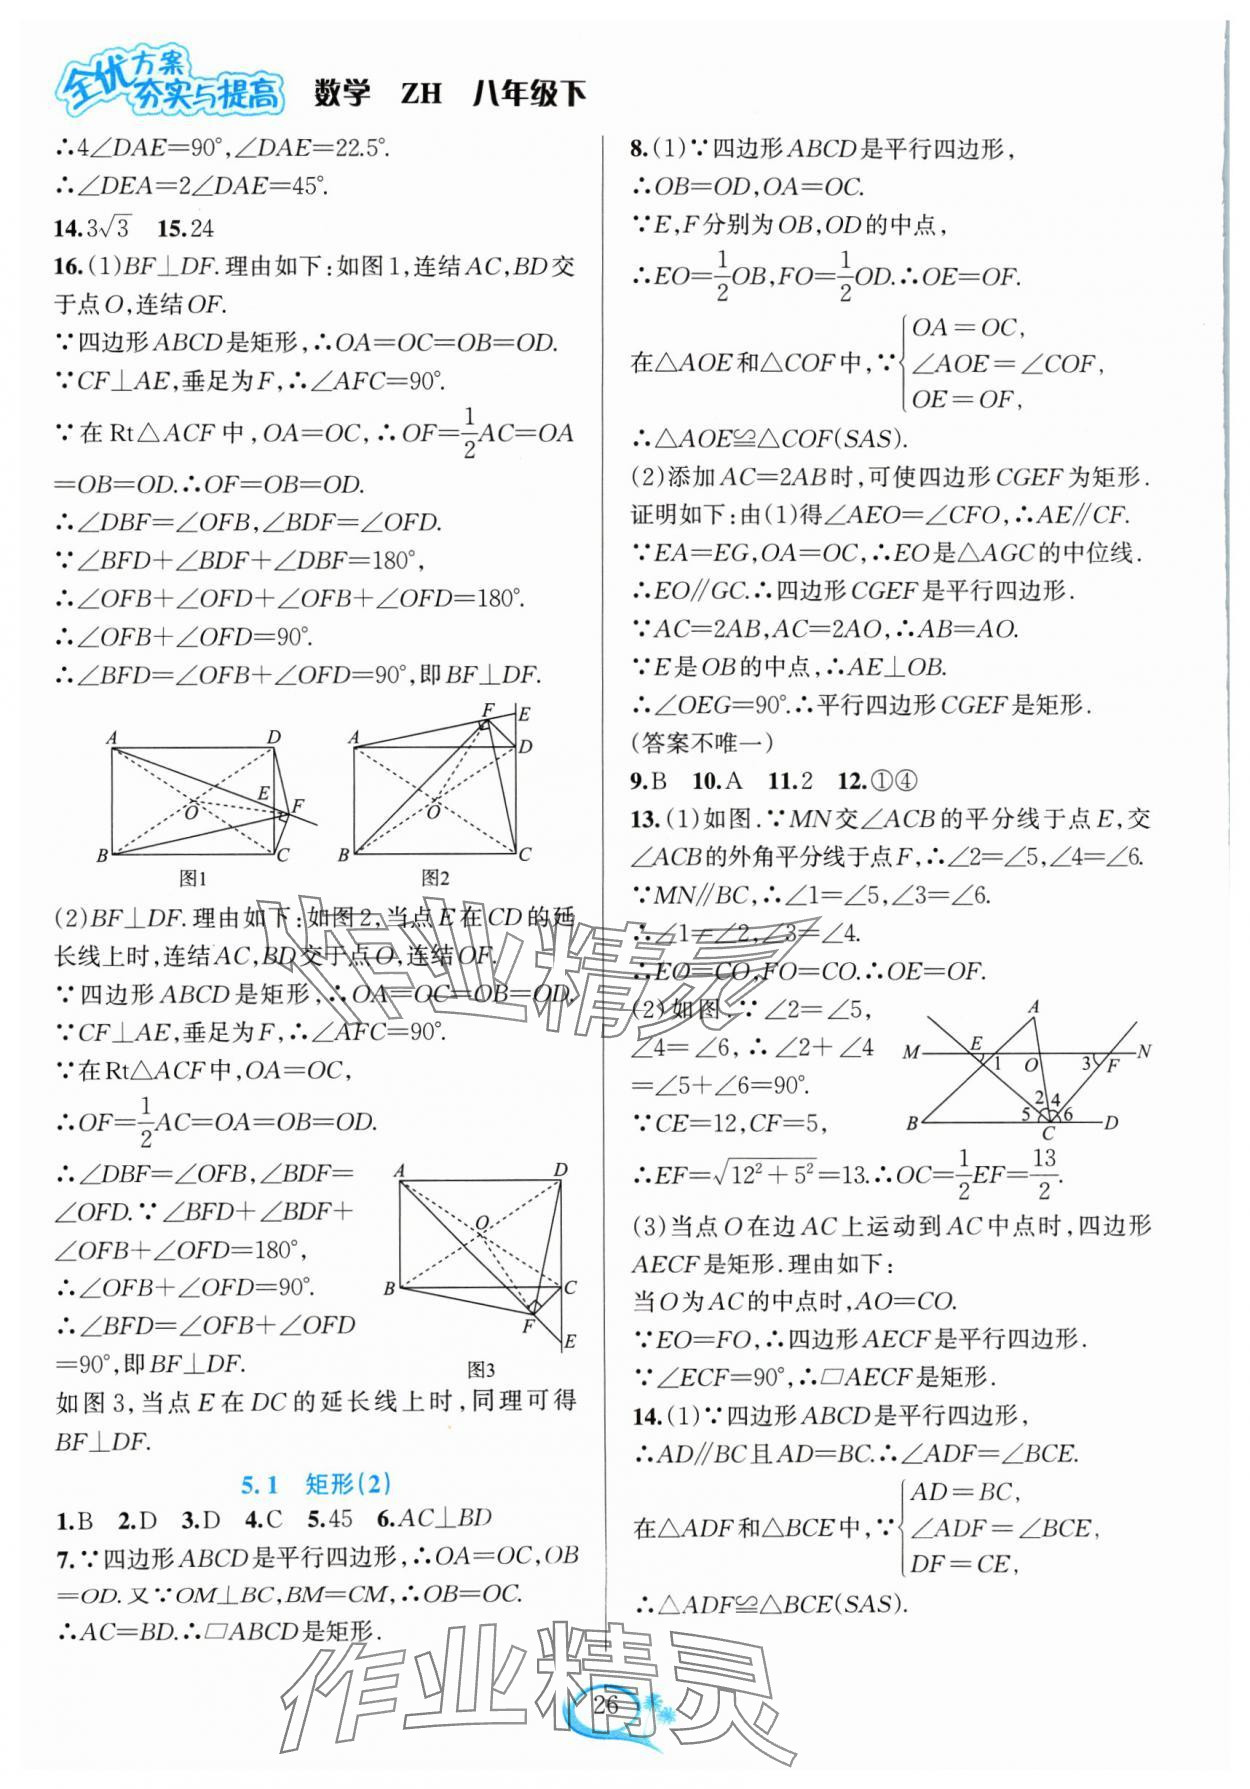 全优方案
夯实与提高
数学 ZH 八年级下
∴4∠DAE=90°,∠DAE=22.5°.
∴∠DEA=2∠DAE=45°.
14.3√3 15.24
16.(1)BF⊥DF.理由如下:如图1,连结AC,BD交
于点O,连结OF.
∵四边形ABCD是矩形,∴OA=OC=OB=OD.
∵CF⊥AE,垂足为F,∴∠AFC=90°.
∵在Rt△ACF中,OA=OC,∴OF=1/2AC=OA
=OB=OD.∴OF=OB=OD.
∴∠DBF=∠OFB,∠BDF=∠OFD.
∵∠BFD+∠BDF+∠DBF=180°,
∴∠OFB+∠OFD+∠OFB+∠OFD=180°.
∴∠OFB+∠OFD=90°.
∴∠BFD=∠OFB+∠OFD=90°,即BF⊥DF.
A D E O F B C
图1
F E A D O B C
图2
(2)BF⊥DF.理由如下:如图2,当点E在CD的延
长线上时,连结AC,BD交于点O,连结OF.
∵四边形ABCD是矩形,∴OA=OC=OB=OD.
∵CF⊥AE,垂足为F,∴∠AFC=90°.
∵在Rt△ACF中,OA=OC,
∴OF=1/2AC=OA=OB=OD.
∴∠DBF=∠OFB,∠BDF=
∠OFD.∵∠BFD+∠BDF+
∠OFB+∠OFD=180°,
∴∠OFB+∠OFD=90°.
∴∠BFD=∠OFB+∠OFD
=90°,即BF⊥DF.
A D O B C F E
图3
如图3,当点E在DC的延长线上时,同理可得
BF⊥DF.
5.1 矩形(2)
1.B 2.D 3.D 4.C 5.45 6.AC⊥BD
7.∵四边形ABCD是平行四边形,∴OA=OC,OB
=OD.又∵OM⊥BC,BM=CM,∴OB=OC.
∴AC=BD.∴□ABCD是矩形.
8.(1)∵四边形ABCD是平行四边形,
∴OB=OD,OA=OC.
∵E,F分别为OB,OD的中点,
∴EO=1/2OB,FO=1/2OD.∴OE=OF.
在△AOE和△COF中,∵{OA=OC,
∠AOE=∠COF,
OE=OF,
∴△AOE≌△COF(SAS).
(2)添加AC=2AB时,可使四边形CGEF为矩形.
证明如下:由(1)得∠AEO=∠CFO,∴AE∥CF.
∵EA=EG,OA=OC,∴EO是△AGC的中位线.
∴EO∥GC.∴四边形CGEF是平行四边形.
∵AC=2AB,AC=2AO,∴AB=AO.
∵E是OB的中点,∴AE⊥OB.
∴∠OEG=90°.∴平行四边形CGEF是矩形.
(答案不唯一)
9.B 10.A 11.2 12.①④
13.(1)如图.∵MN交∠ACB的平分线于点E,交
∠ACB的外角平分线于点F,∴∠2=∠5,∠4=∠6.
∵MN∥BC,∴∠1=∠5,∠3=∠6.
∴∠1=∠2,∠3=∠4.
∴EO=CO,FO=CO.∴OE=OF.
(2)如图.∵∠2=∠5,
∠4=∠6,∴∠2+∠4
=∠5+∠6=90°.
∵CE=12,CF=5,
A M E 1 O 3 F N
2 4 5 6 B C D
∴EF=√(12²+5²)=13.∴OC=1/2EF=13/2.
(3)当点O在边AC上运动到AC中点时,四边形
AECF是矩形.理由如下:
当O为AC的中点时,AO=CO.
∵EO=FO,∴四边形AECF是平行四边形.
∵∠ECF=90°,∴□AECF是矩形.
14.(1)∵四边形ABCD是平行四边形,
∴AD∥BC且AD=BC.∴∠ADF=∠BCE.
在△ADF和△BCE中,∵{AD=BC,
∠ADF=∠BCE,
DF=CE,
∴△ADF≌△BCE(SAS).
作业精灵
作业精灵
26